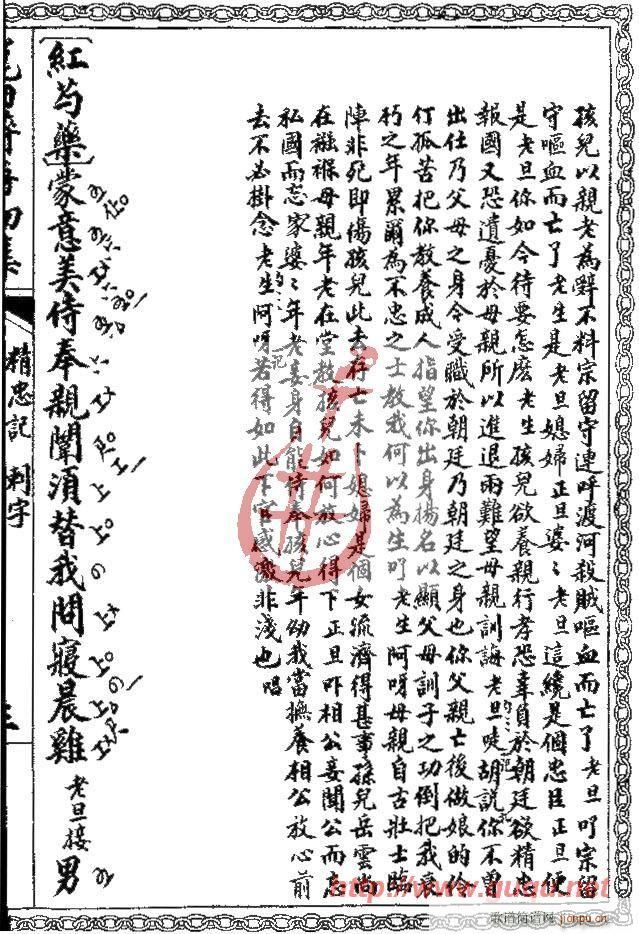 孩兒以親老為辭不料宗留守連呼渡河殺賊嘔血而亡了老旦吖宗留
守嘔血而亡了老生是老旦媳婦正旦婆〻老旦這纔是個忠臣正旦便
是老旦你如今待要怎麽老生孩兒欲養親行孝恐辜負於朝廷欲精忠
報國又恐遺憂於母親所以進退兩難望母親訓誨老旦唗胡說你不曽
出仕乃父母之身今受職於朝廷乃朝廷之身也你父親亡後做娘的伶
仃孤苦把你教養成人指望你出身揚名以顯父母訓子之功倒把我衰
朽之年累爾為不忠之士教我何以為生吖老生阿呀母親自古壯士臨
陣非死即傷孩兒此去存亡未卜媳婦是個女流濟得甚事孫兒岳雲尚
在襁褓母親年老在堂教孩兒如何放心得下正旦吓相公妾聞公而忘
私國而忘家婆〻年老妾身自能侍奉孩兒年幼我當撫養相公放心前
去不必掛念老生阿呀若得如此下官感激非淺也唱
紅芍藥蒙意美侍奉親闈須替我問寢晨雞老旦接男
精忠記 刺字
http://www.ququ.net
歌谱简谱网
jianpu.cn